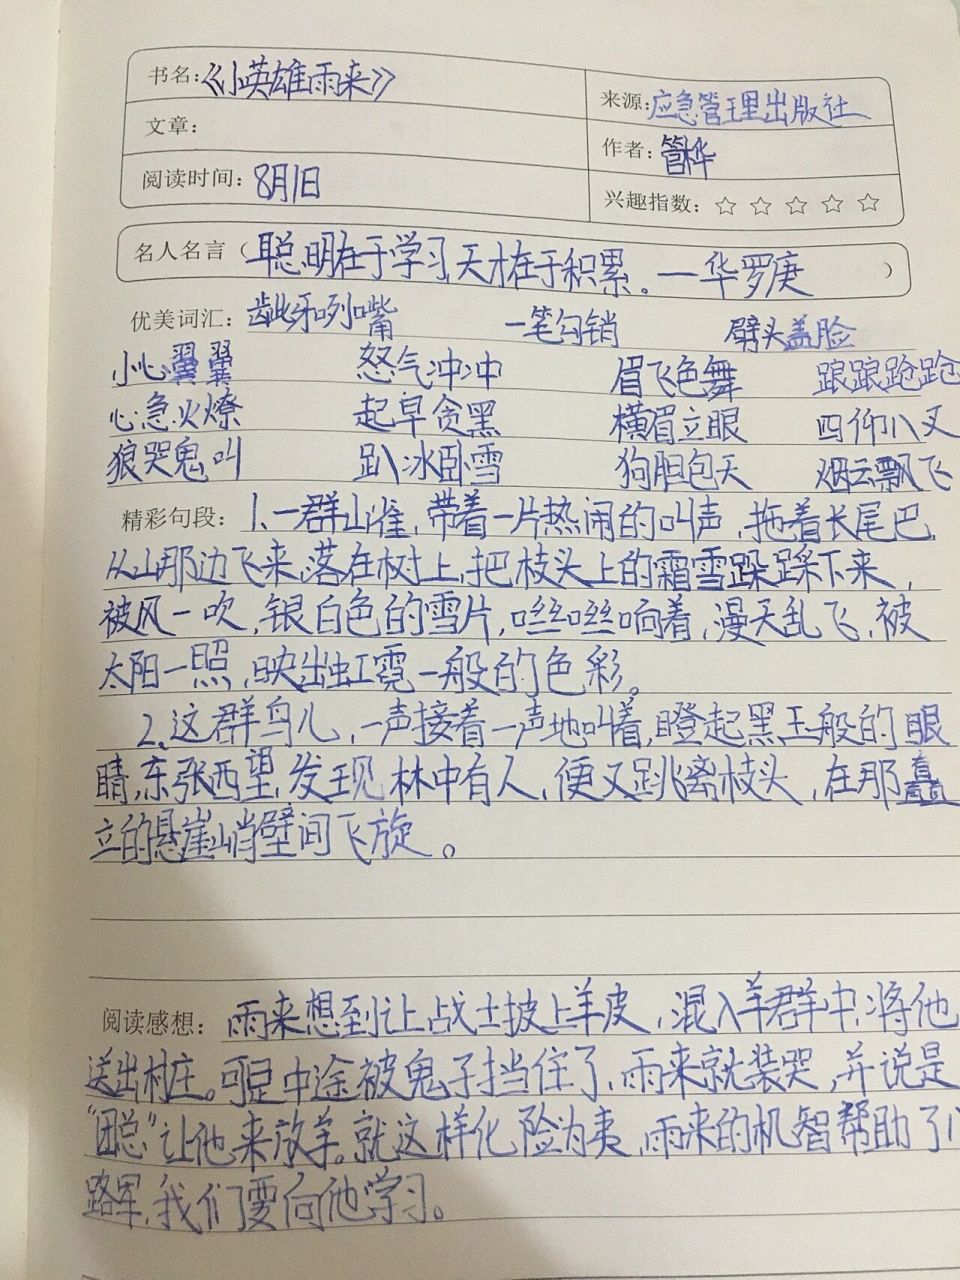 书名:《小英雄雨来》
来源:应急管理出版社
文章:
作者:管桦
阅读时间:8月1日
兴趣指数:☆ ☆ ☆ ☆ ☆
名人名言(聪明在于学习天才在于积累。—华罗庚)
优美词汇:龇牙咧嘴 一笔勾销 劈头盖脸
小心翼翼 怒气冲冲 眉飞色舞 踉踉跄跄
心急火燎 起早贪黑 横眉立眼 四仰八叉
狼哭鬼叫 趴冰卧雪 狗胆包天 烟云飘飞
精彩句段:1、一群山雀,带着一片热闹的叫声,拖着长尾巴,
从山那边飞来,落在树上,把枝头上的霜雪跺踩下来,
被风一吹,银白色的雪片,咝咝响着,漫天乱飞,被
太阳一照,映出虹霓一般的色彩。
2、这群鸟儿,一声接着一声地叫着,瞪起黑玉般的眼
睛,东张西望,发现林中有人,便又跳离枝头,在那矗
立的悬崖峭壁间飞旋。
阅读感想:雨来想到让战士披上羊皮,混入羊群中,将他
送出村庄。可是中途被鬼子挡住了,雨来就装哭,并说是
“团总”让他来放羊。就这样化险为夷,雨来的机智帮助了八
路军,我们要向他学习。